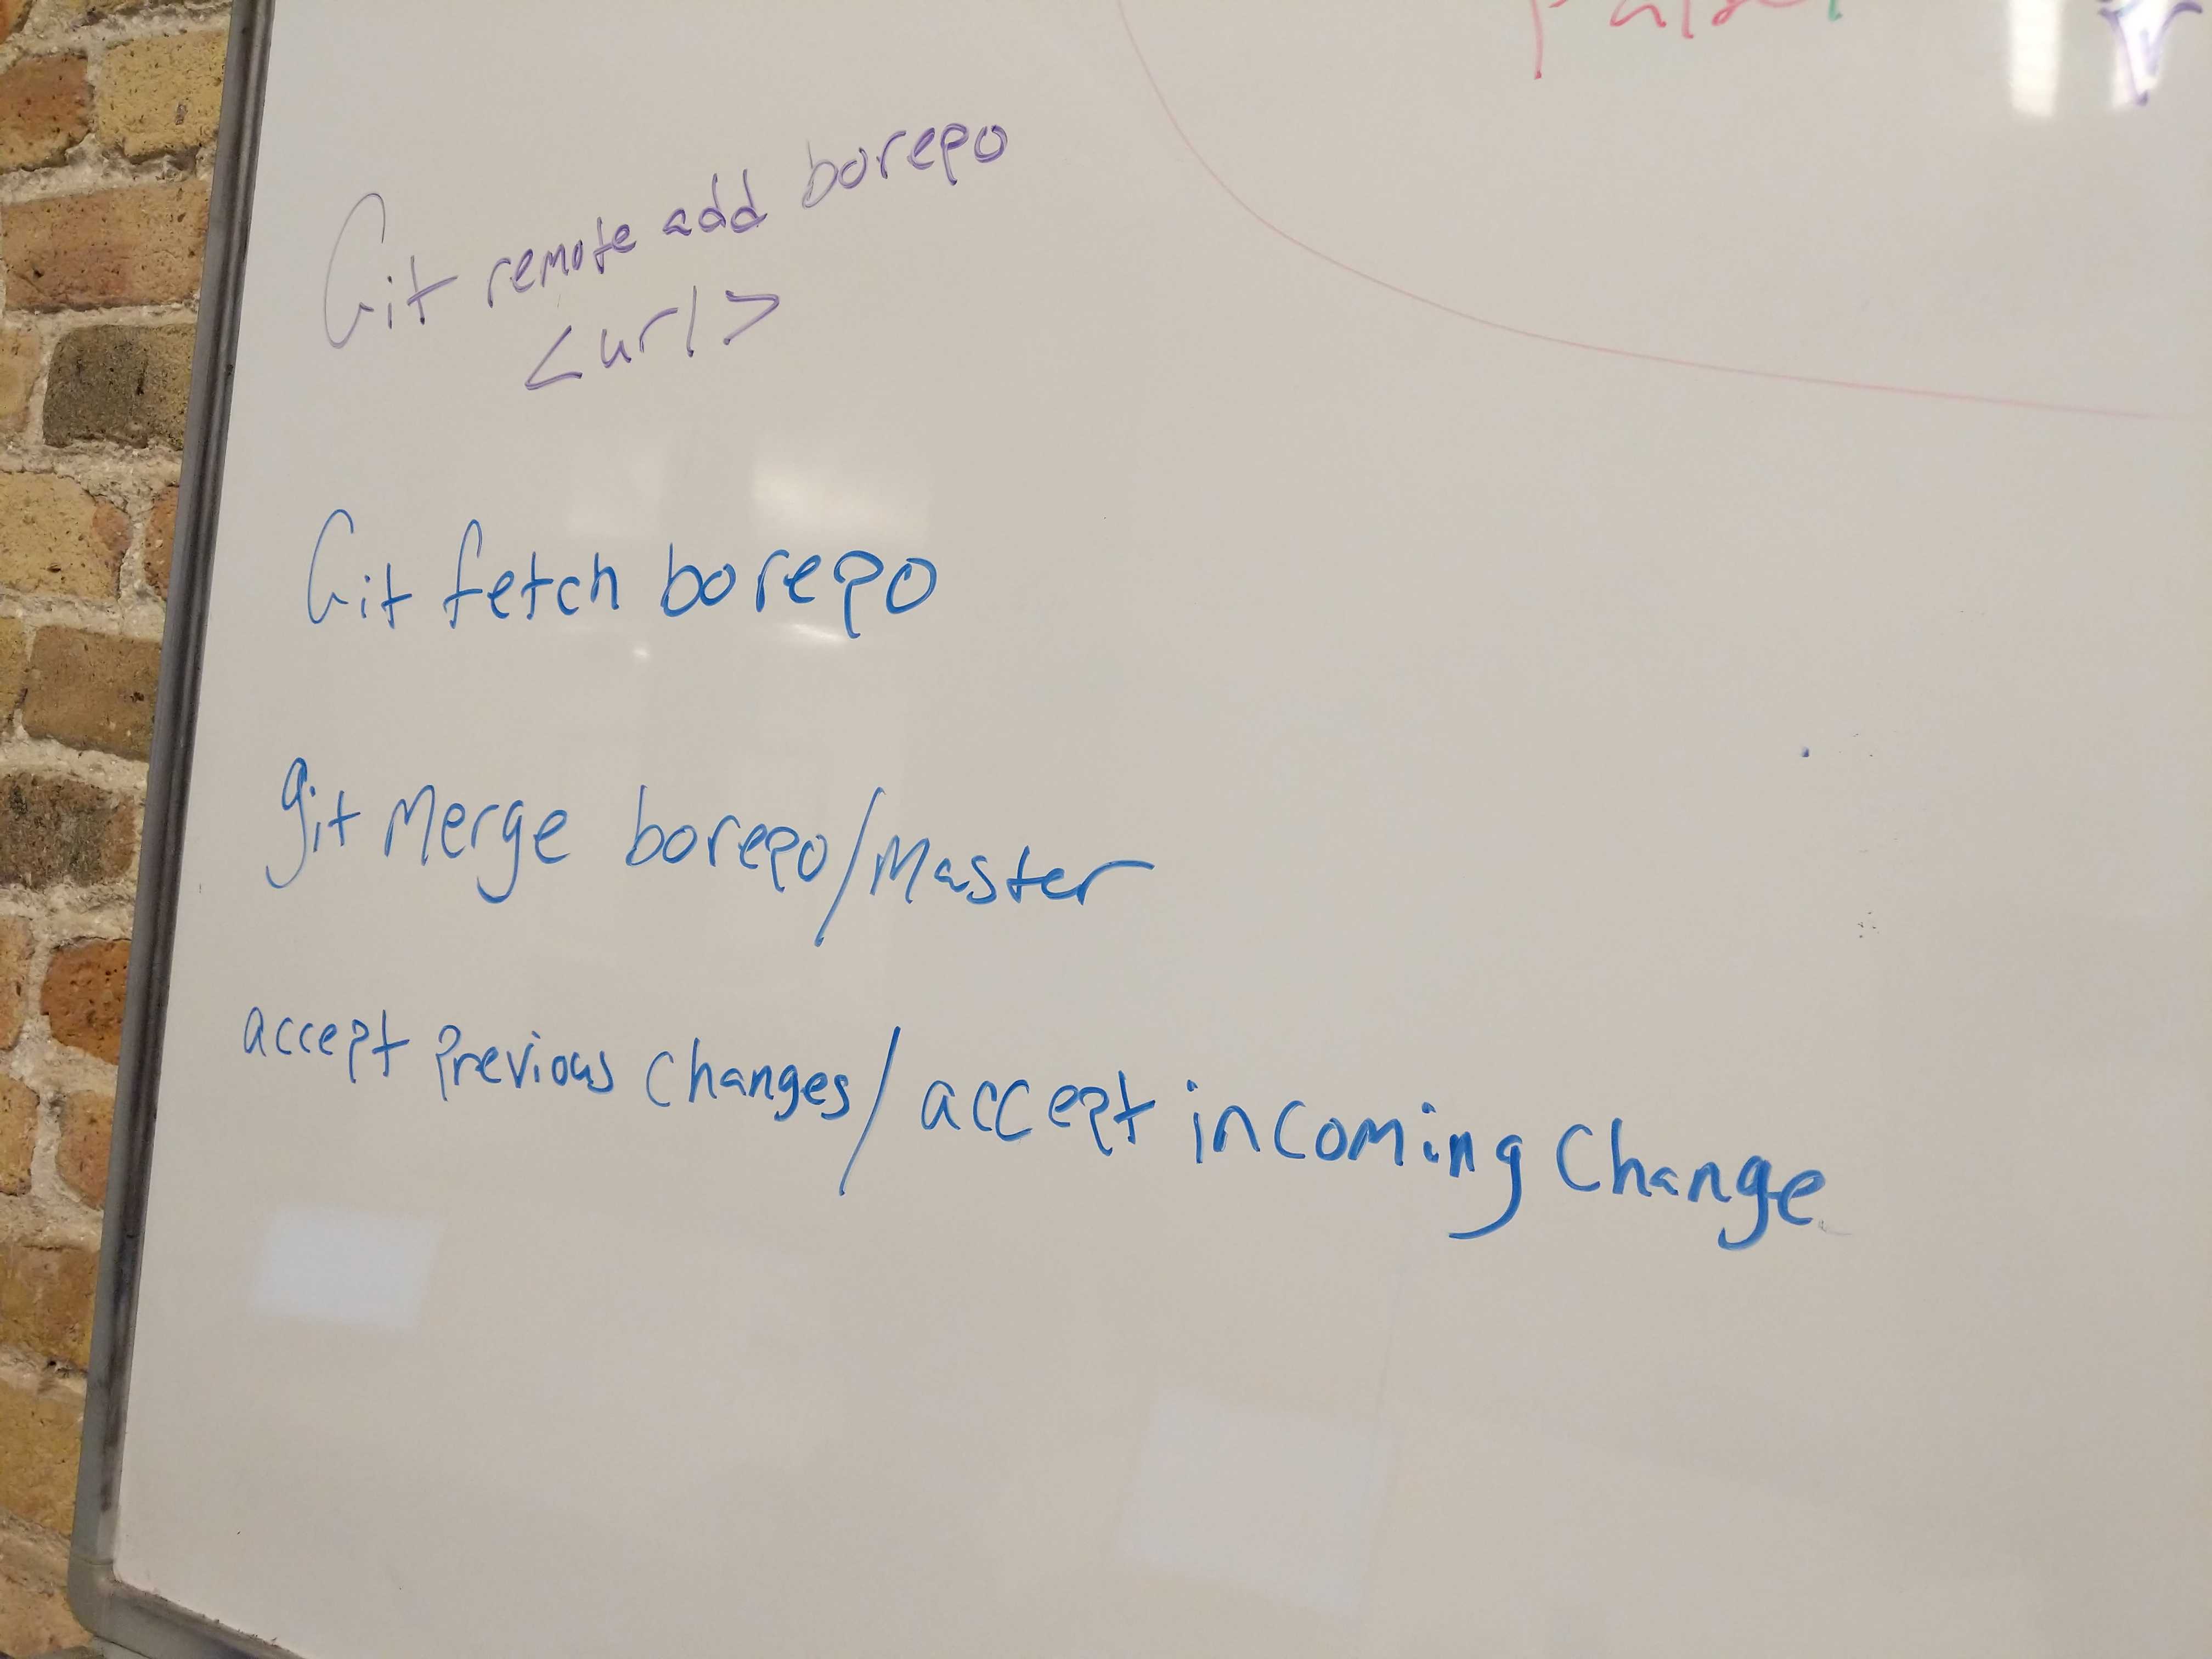 Git remote add borepo
<url>
Git fetch borepo
git Merge borepo/Master
accept Previous changes/accept incoming Change